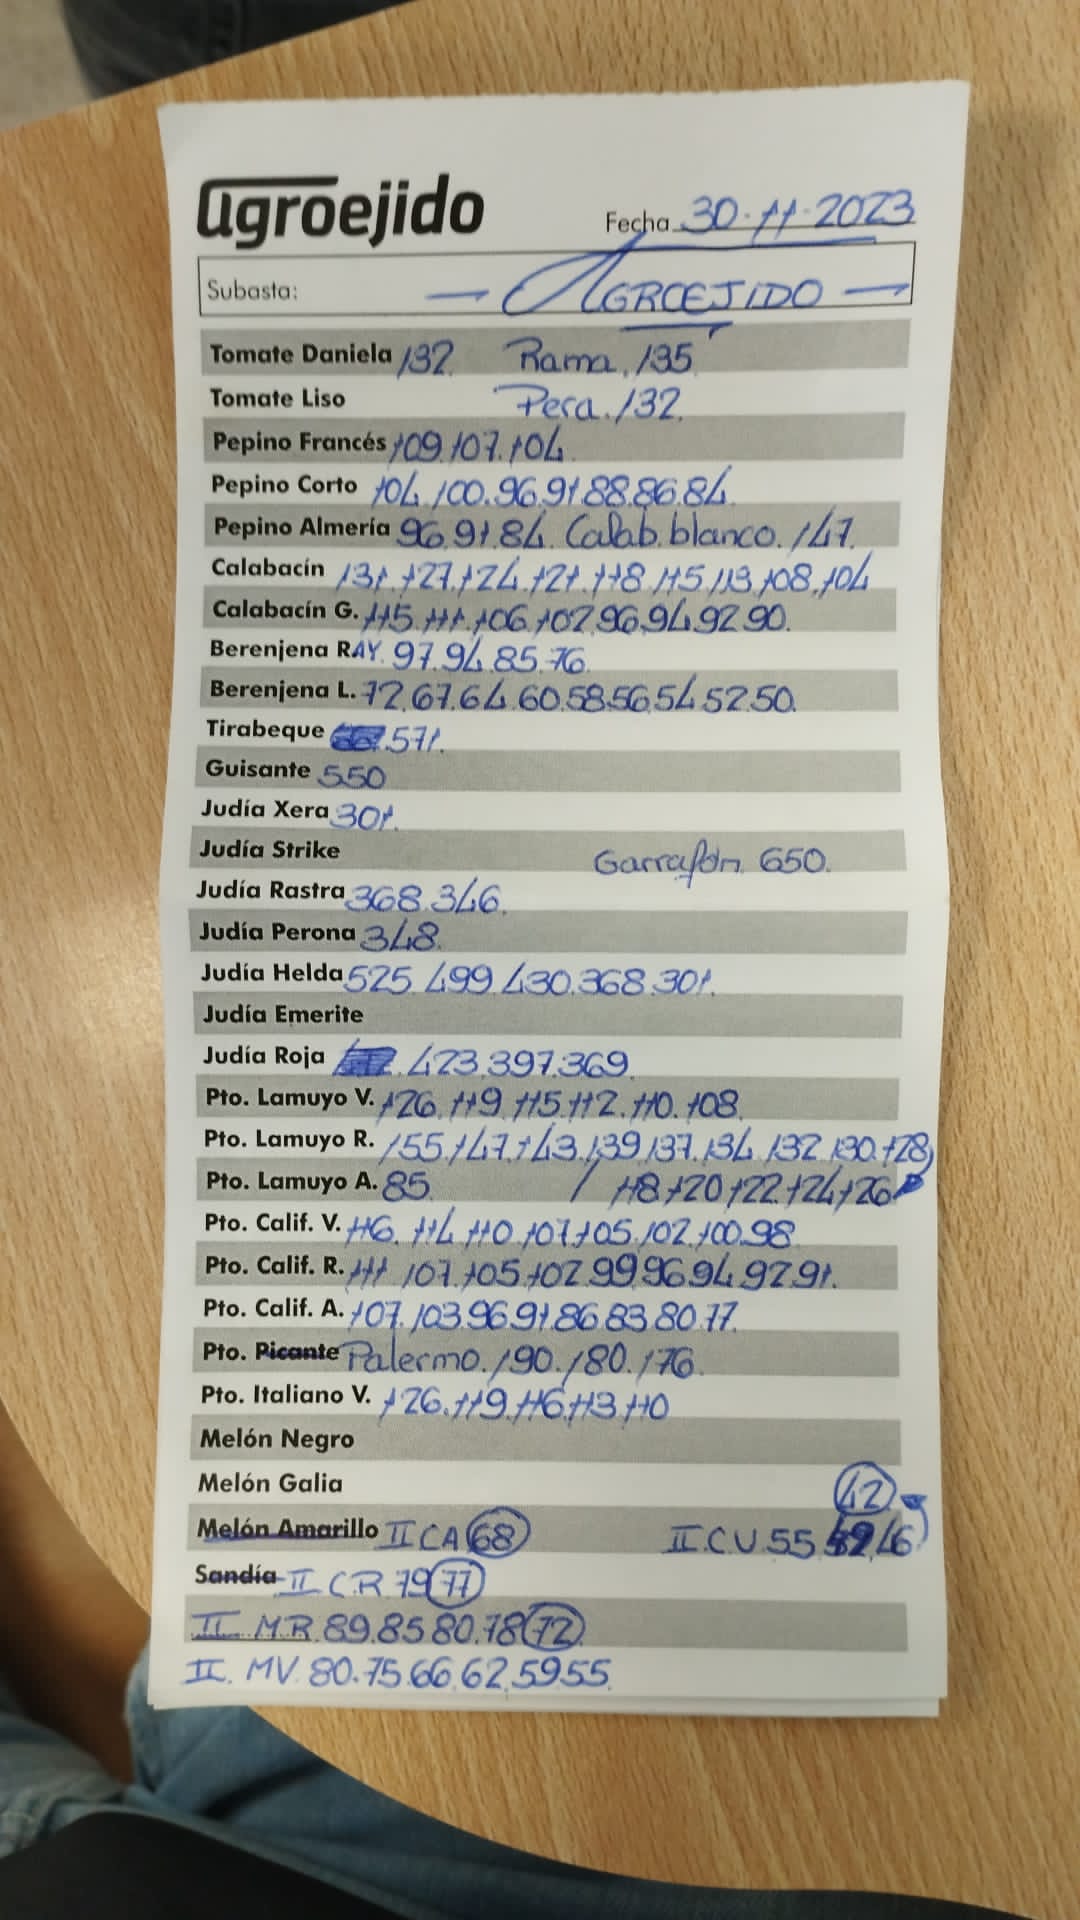 agroejido
Fecha 30-11-2023
Subasta: — AGROEJIDO —
Tomate Daniela 132. Rama. 135
Tomate Liso Pera. 132.
Pepino Francés 109.107.104.
Pepino Corto 104.100.96.91.88.86.84.
Pepino Almería 96.91.84. Calab. blanco. 147.
Calabacín 131.127.124.121.118.115.113.108.104
Calabacín G. 115.111.106.102.96.94.92.90.
Berenjena RAY. 97.94.85.76.
Berenjena L. 72.67.64.60.58.56.54.52.50.
Tirabeque 571.
Guisante 550
Judía Xera 301.
Judía Strike Garrafón 650.
Judía Rastra 368.346.
Judía Perona 348.
Judía Helda 525.499.430.368.301.
Judía Emerite
Judía Roja 423.397.369.
Pto. Lamuyo V. 126.119.115.112.110.108.
Pto. Lamuyo R. 155.147.143.139.137.134.132.130.128
Pto. Lamuyo A. 85. / 118.120.122.124.126
Pto. Calif. V. 116.114.110.107.105.102.100.98.
Pto. Calif. R. 111.107.105.102.99.96.94.92.91.
Pto. Calif. A. 107.103.96.91.86.83.80.77.
Pto. Picante Palermo. 190.180.176.
Pto. Italiano V. 126.119.116.113.110
Melón Negro
Melón Galia 42
Melón Amarillo II CA 68 II.CV 55 46
Sandía II CR 79 77
II MR 89.85.80.78 72
II. MV. 80.75.66.62.59.55.